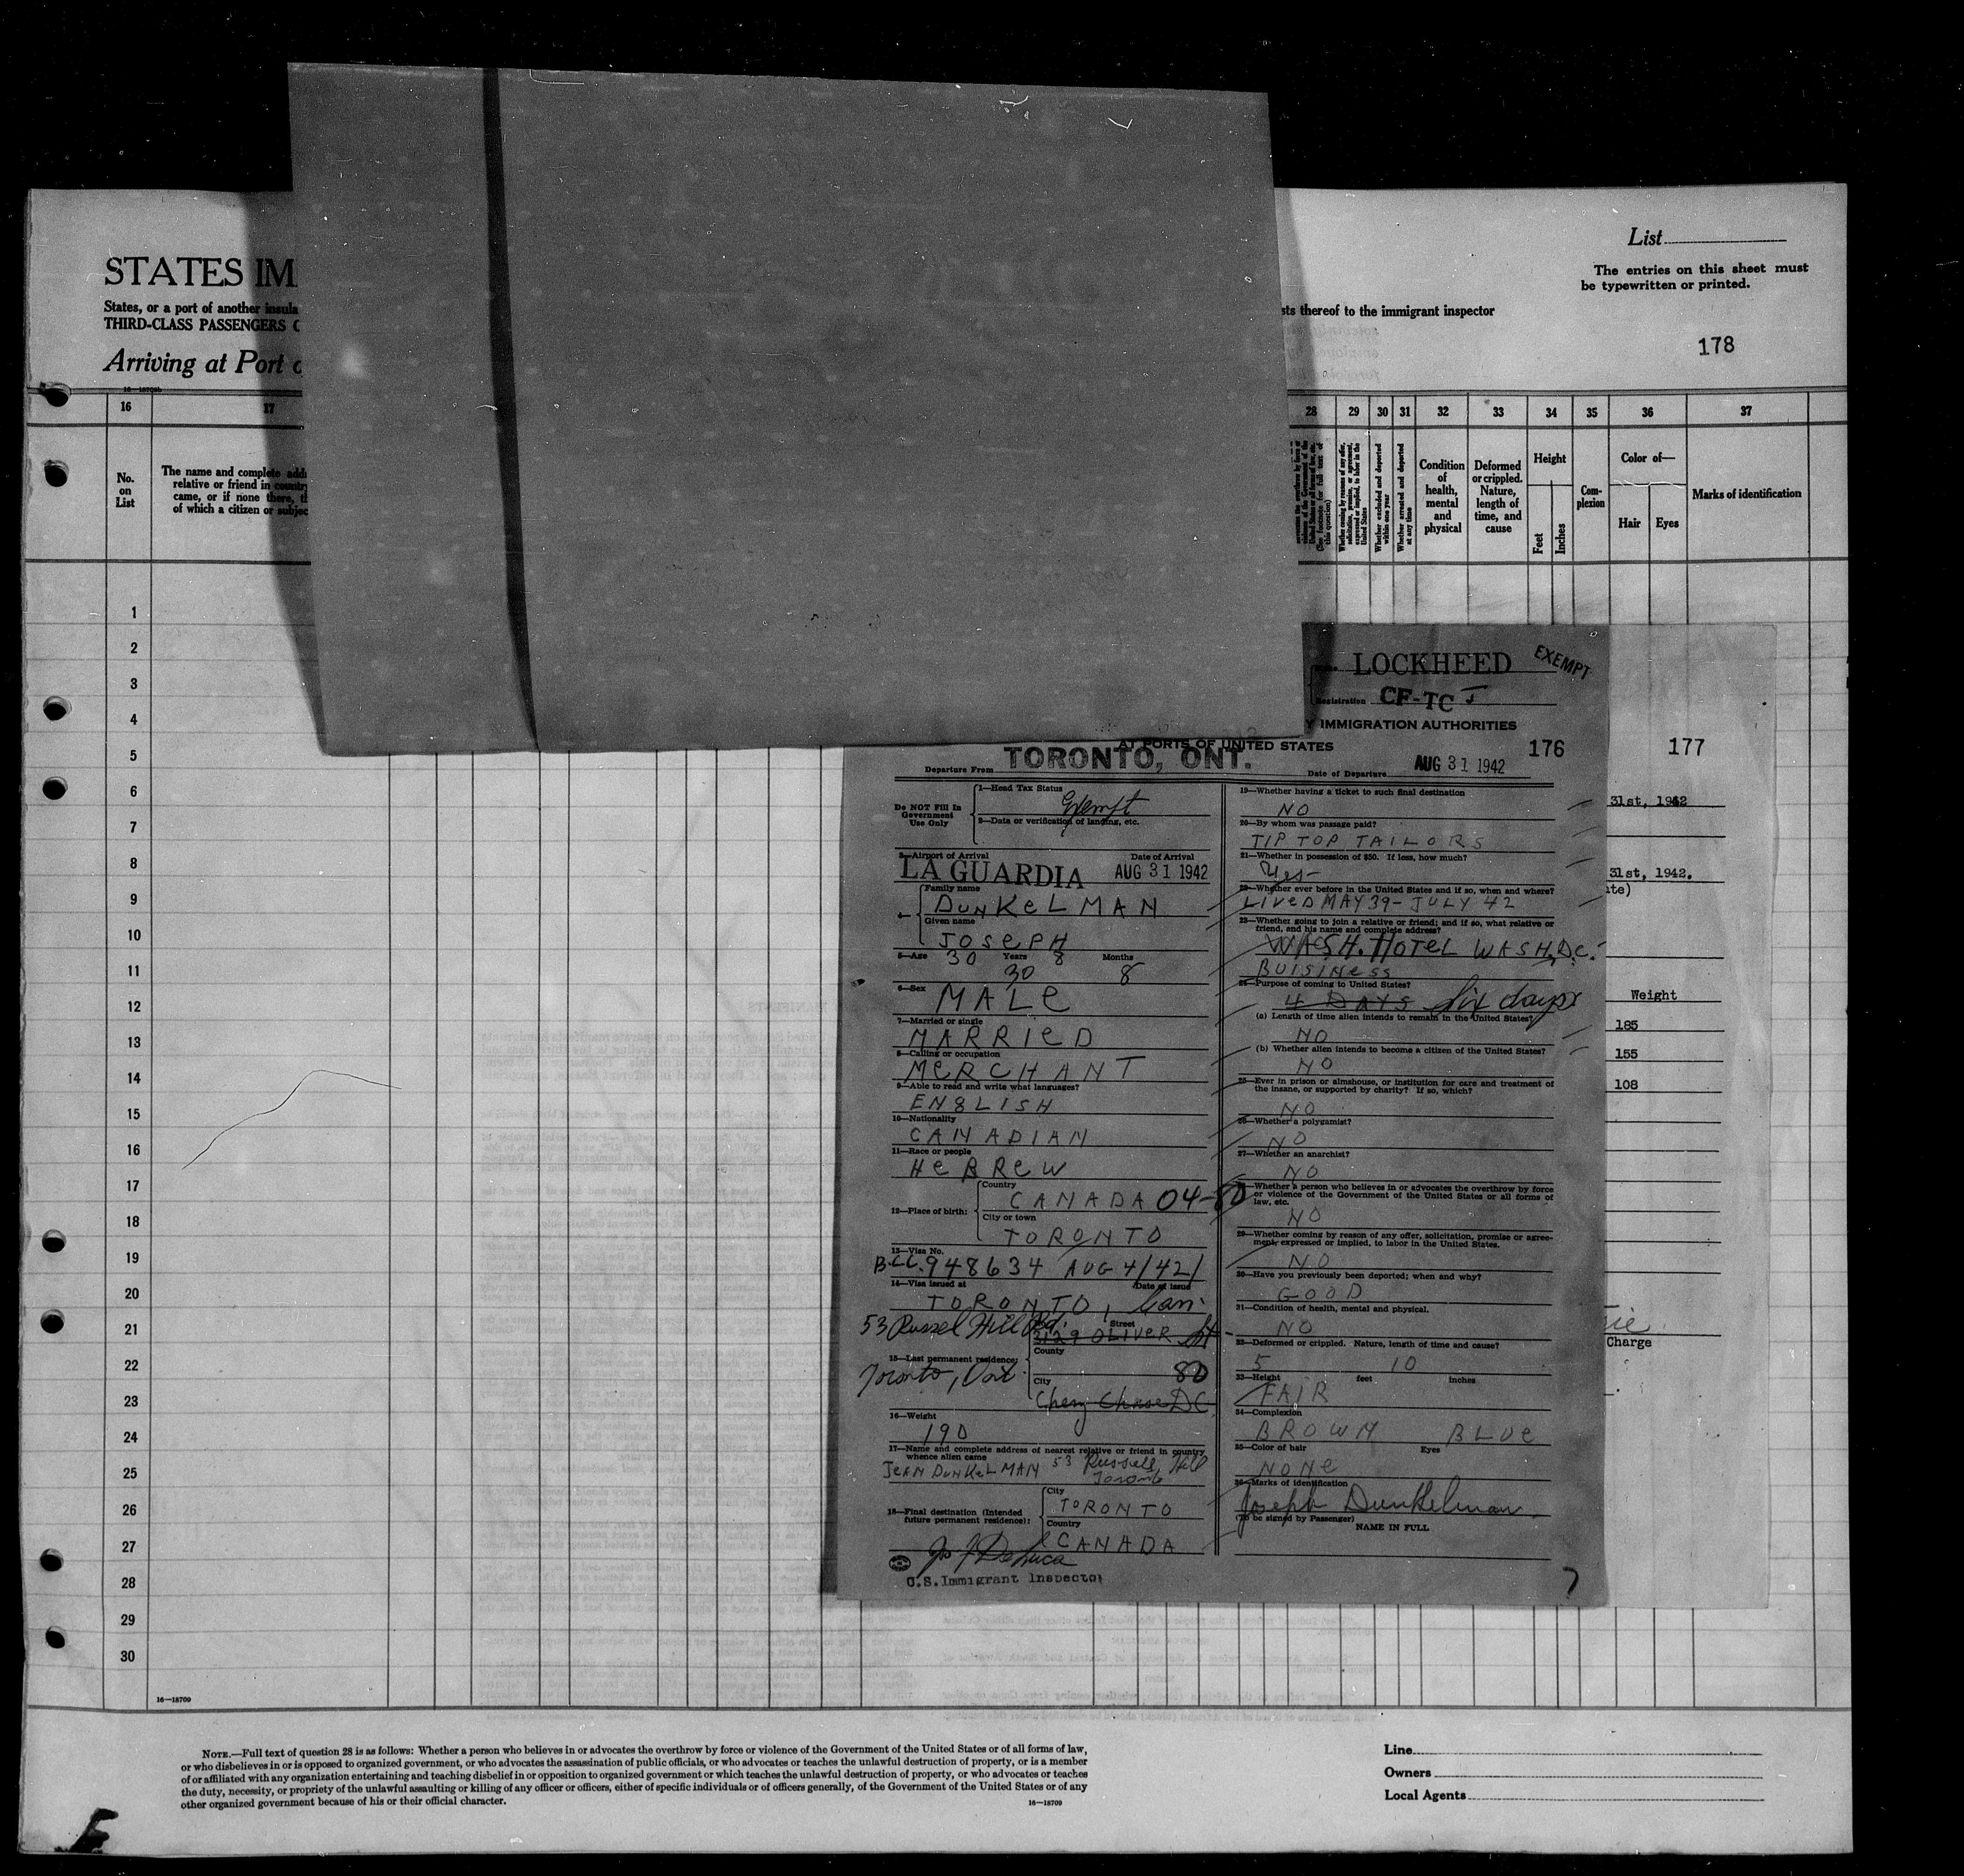 List
The entries on this sheet must
be typewritten or printed.
STATES IM
States, or a port of another insula
THIRD-CLASS PASSENGERS
Arriving at Port
sts thereof to the immigrant inspector
178
16 17 28 29 30 31 32 33 34 35 36 37
No.
on
List
The name and complete add
relative or friend in country
came, or if none there, t
of which a citizen or subjec
Whether excluded and deported
within one year
Whether arrested and deported
at any time
Condition
of
health,
mental
and
physical
Deformed
or crippled.
Nature,
length of
time, and
cause
Height
Feet
Inches
Com-
plexion
Color of—
Hair
Eyes
Marks of identification
1
2
3
4
5
6
7
8
9
10
11
12
13
14
15
16
17
18
19
20
21
22
23
24
25
26
27
28
29
30
16—18709
LOCKHEED
EXEMPT
Registration CF-TC J
Y IMMIGRATION AUTHORITIES
AT PORTS OF UNITED STATES
176
Departure From TORONTO, ONT.
Date of Departure AUG 31 1942
Do NOT Fill In
Government
Use Only
1—Head Tax Status
Exempt
2—Data or verification of landing, etc.
3—Airport of Arrival
Date of Arrival
LA GUARDIA AUG 31 1942
4—
Family name
DUNKELMAN
Given name
JOSEPH
5—Age 30 Years 8 Months
30 8
6—Sex
MALE
7—Married or single
MARRIED
8—Calling or occupation
MERCHANT
9—Able to read and write what languages?
ENGLISH
10—Nationality
CANADIAN
11—Race or people
HEBREW
12—Place of birth:
Country
CANADA 04-80
City or town
TORONTO
13—Visa No.
B.C.C. 948634 AUG 4/42
14—Visa issued at
Date of issue
TORONTO, Can.
53 Russel Hill Rd.
Street
3129 OLIVER St
15—Last permanent residence:
County
80
Toronto, Ont.
City
Chevy Chase DC
16—Weight
190
17—Name and complete address of nearest relative or friend in country
whence alien came
JEAN DUNKELMAN 53 Russell Hill
Toronto
18—Final destination (Intended
future permanent residence):
City
TORONTO
Country
CANADA
U.S. Immigrant Inspector
19—Whether having a ticket to such final destination
NO
20—By whom was passage paid?
TIP TOP TAILORS
21—Whether in possession of $50. If less, how much?
Yes
22—Whether ever before in the United States and if so, when and where?
LIVED MAY 39 - JULY 42
23—Whether going to join a relative or friend; and if so, what relative or
friend, and his name and complete address?
WASH. HOTEL WASH. D.C.
BUISINESS
24—Purpose of coming to United States?
4 DAYS Six days
(a) Length of time alien intends to remain in the United States?
NO
(b) Whether alien intends to become a citizen of the United States?
NO
25—Ever in prison or almshouse, or institution for care and treatment of
the insane, or supported by charity? If so, which?
NO
26—Whether a polygamist?
NO
27—Whether an anarchist?
NO
28—Whether a person who believes in or advocates the overthrow by force
or violence of the Government of the United States or all forms of
law, etc.
NO
29—Whether coming by reason of any offer, solicitation, promise or agree-
ment, expressed or implied, to labor in the United States.
NO
30—Have you previously been deported; when and why?
GOOD
31—Condition of health, mental and physical.
NO
32—Deformed or crippled. Nature, length of time and cause?
5 10
33—Height feet inches
FAIR
34—Complexion
BROWN BLUE
35—Color of hair Eyes
NONE
36—Marks of identification
Joseph Dunkelman
(To be signed by Passenger)
NAME IN FULL
7
177
31st, 1942
31st, 1942.
Weight
185
155
108
Charge
NOTE.—Full text of question 28 is as follows: Whether a person who believes in or advocates the overthrow by force or violence of the Government of the United States or of all forms of law,
or who disbelieves in or is opposed to organized government, or who advocates the assassination of public officials, or who advocates or teaches the unlawful destruction of property, or is a member
of or affiliated with any organization entertaining and teaching disbelief in or opposition to organized government or which teaches the unlawful destruction of property, or who advocates or teaches
the duty, necessity, or propriety of the unlawful assaulting or killing of any officer or officers, either of specific individuals or of officers generally, of the Government of the United States or of any
other organized government because of his or their official character.
16—18709
Line
Owners
Local Agents